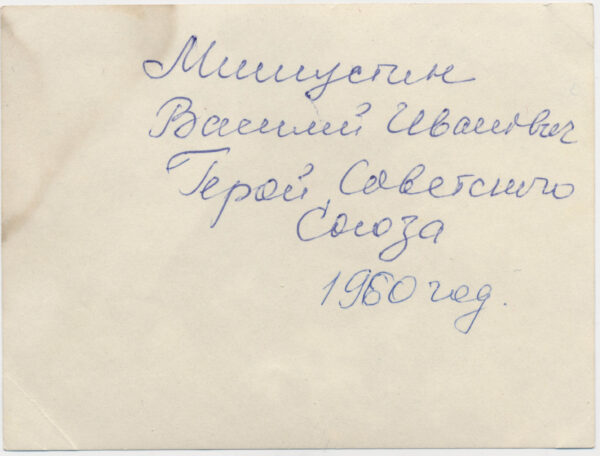 Мишустин
Василий Иванович
Герой Советского
Союза
1960 год.